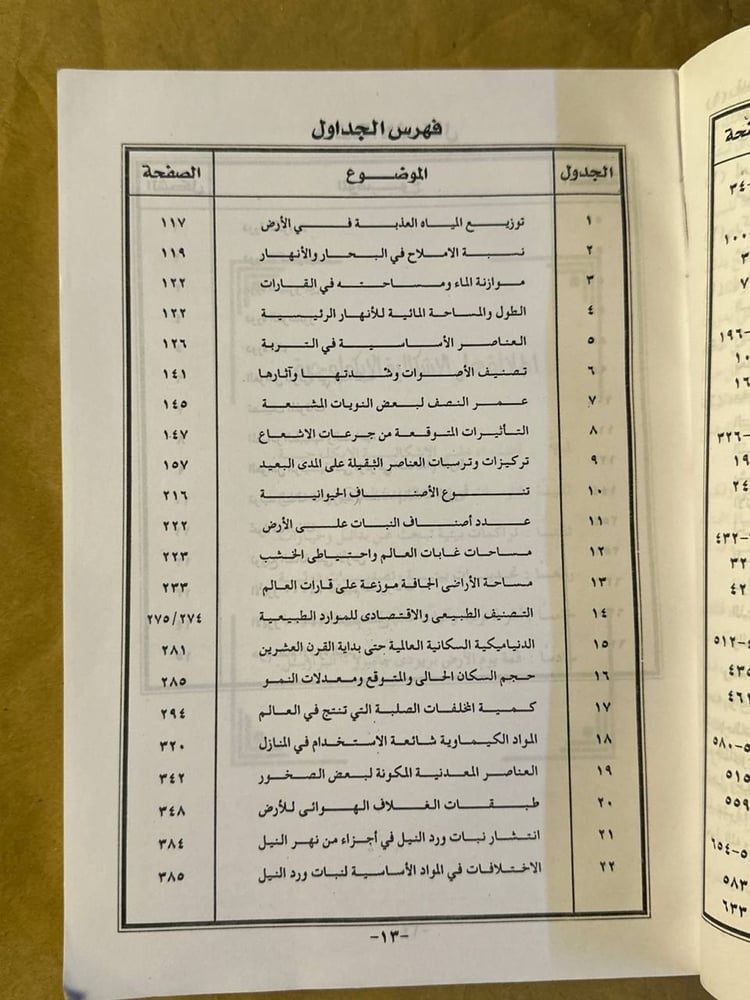 فهرس الجداول
الجدول الموضوع الصفحة
١ توزيع المياه العذبة في الأرض ١١٧
٢ نسبة الاملاح في البحار والأنهار ١١٩
٣ موازنة الماء ومساحته في القارات ١٢٢
٤ الطول والمساحة المائية للأنهار الرئيسية ١٢٢
٥ العناصر الأساسية في التربة ١٢٦
٦ تصنيف الأصوات وشدتها وآثارها ١٤١
٧ عمر النصف لبعض النويات المشعة ١٤٥
٨ التأثيرات المتوقعة من جرعات الاشعاع ١٤٧
٩ تركيزات وترسبات العناصر الثقيلة على المدى البعيد ١٥٧
١٠ تنوع الأصناف الحيوانية ٢١٦
١١ عدد أصناف النبات على الأرض ٢٢٢
١٢ مساحات غابات العالم واحتياطى الخشب ٢٢٣
١٣ مساحة الأراضى الجافة موزعة على قارات العالم ٢٣٣
١٤ التصنيف الطبيعى والاقتصادى للموارد الطبيعية ٢٧٥/٢٧٤
١٥ الديناميكية السكانية العالمية حتى بداية القرن العشرين ٢٨١
١٦ حجم السكان الحالى والمتوقع ومعدلات النمو ٢٨٥
١٧ كمية المخلفات الصلبة التي تنتج في العالم ٢٩٤
١٨ المواد الكيماوية شائعة الاستخدام في المنازل ٣٢٠
١٩ العناصر المعدنية المكونة لبعض الصخور ٣٤٢
٢٠ طبقات الغلاف الهوائى للأرض ٣٤٨
٢١ انتشار نبات ورد النيل في أجزاء من نهر النيل ٣٨٤
٢٢ الاختلافات في المواد الأساسية لنبات ورد النيل ٣٨٥
-١٣-